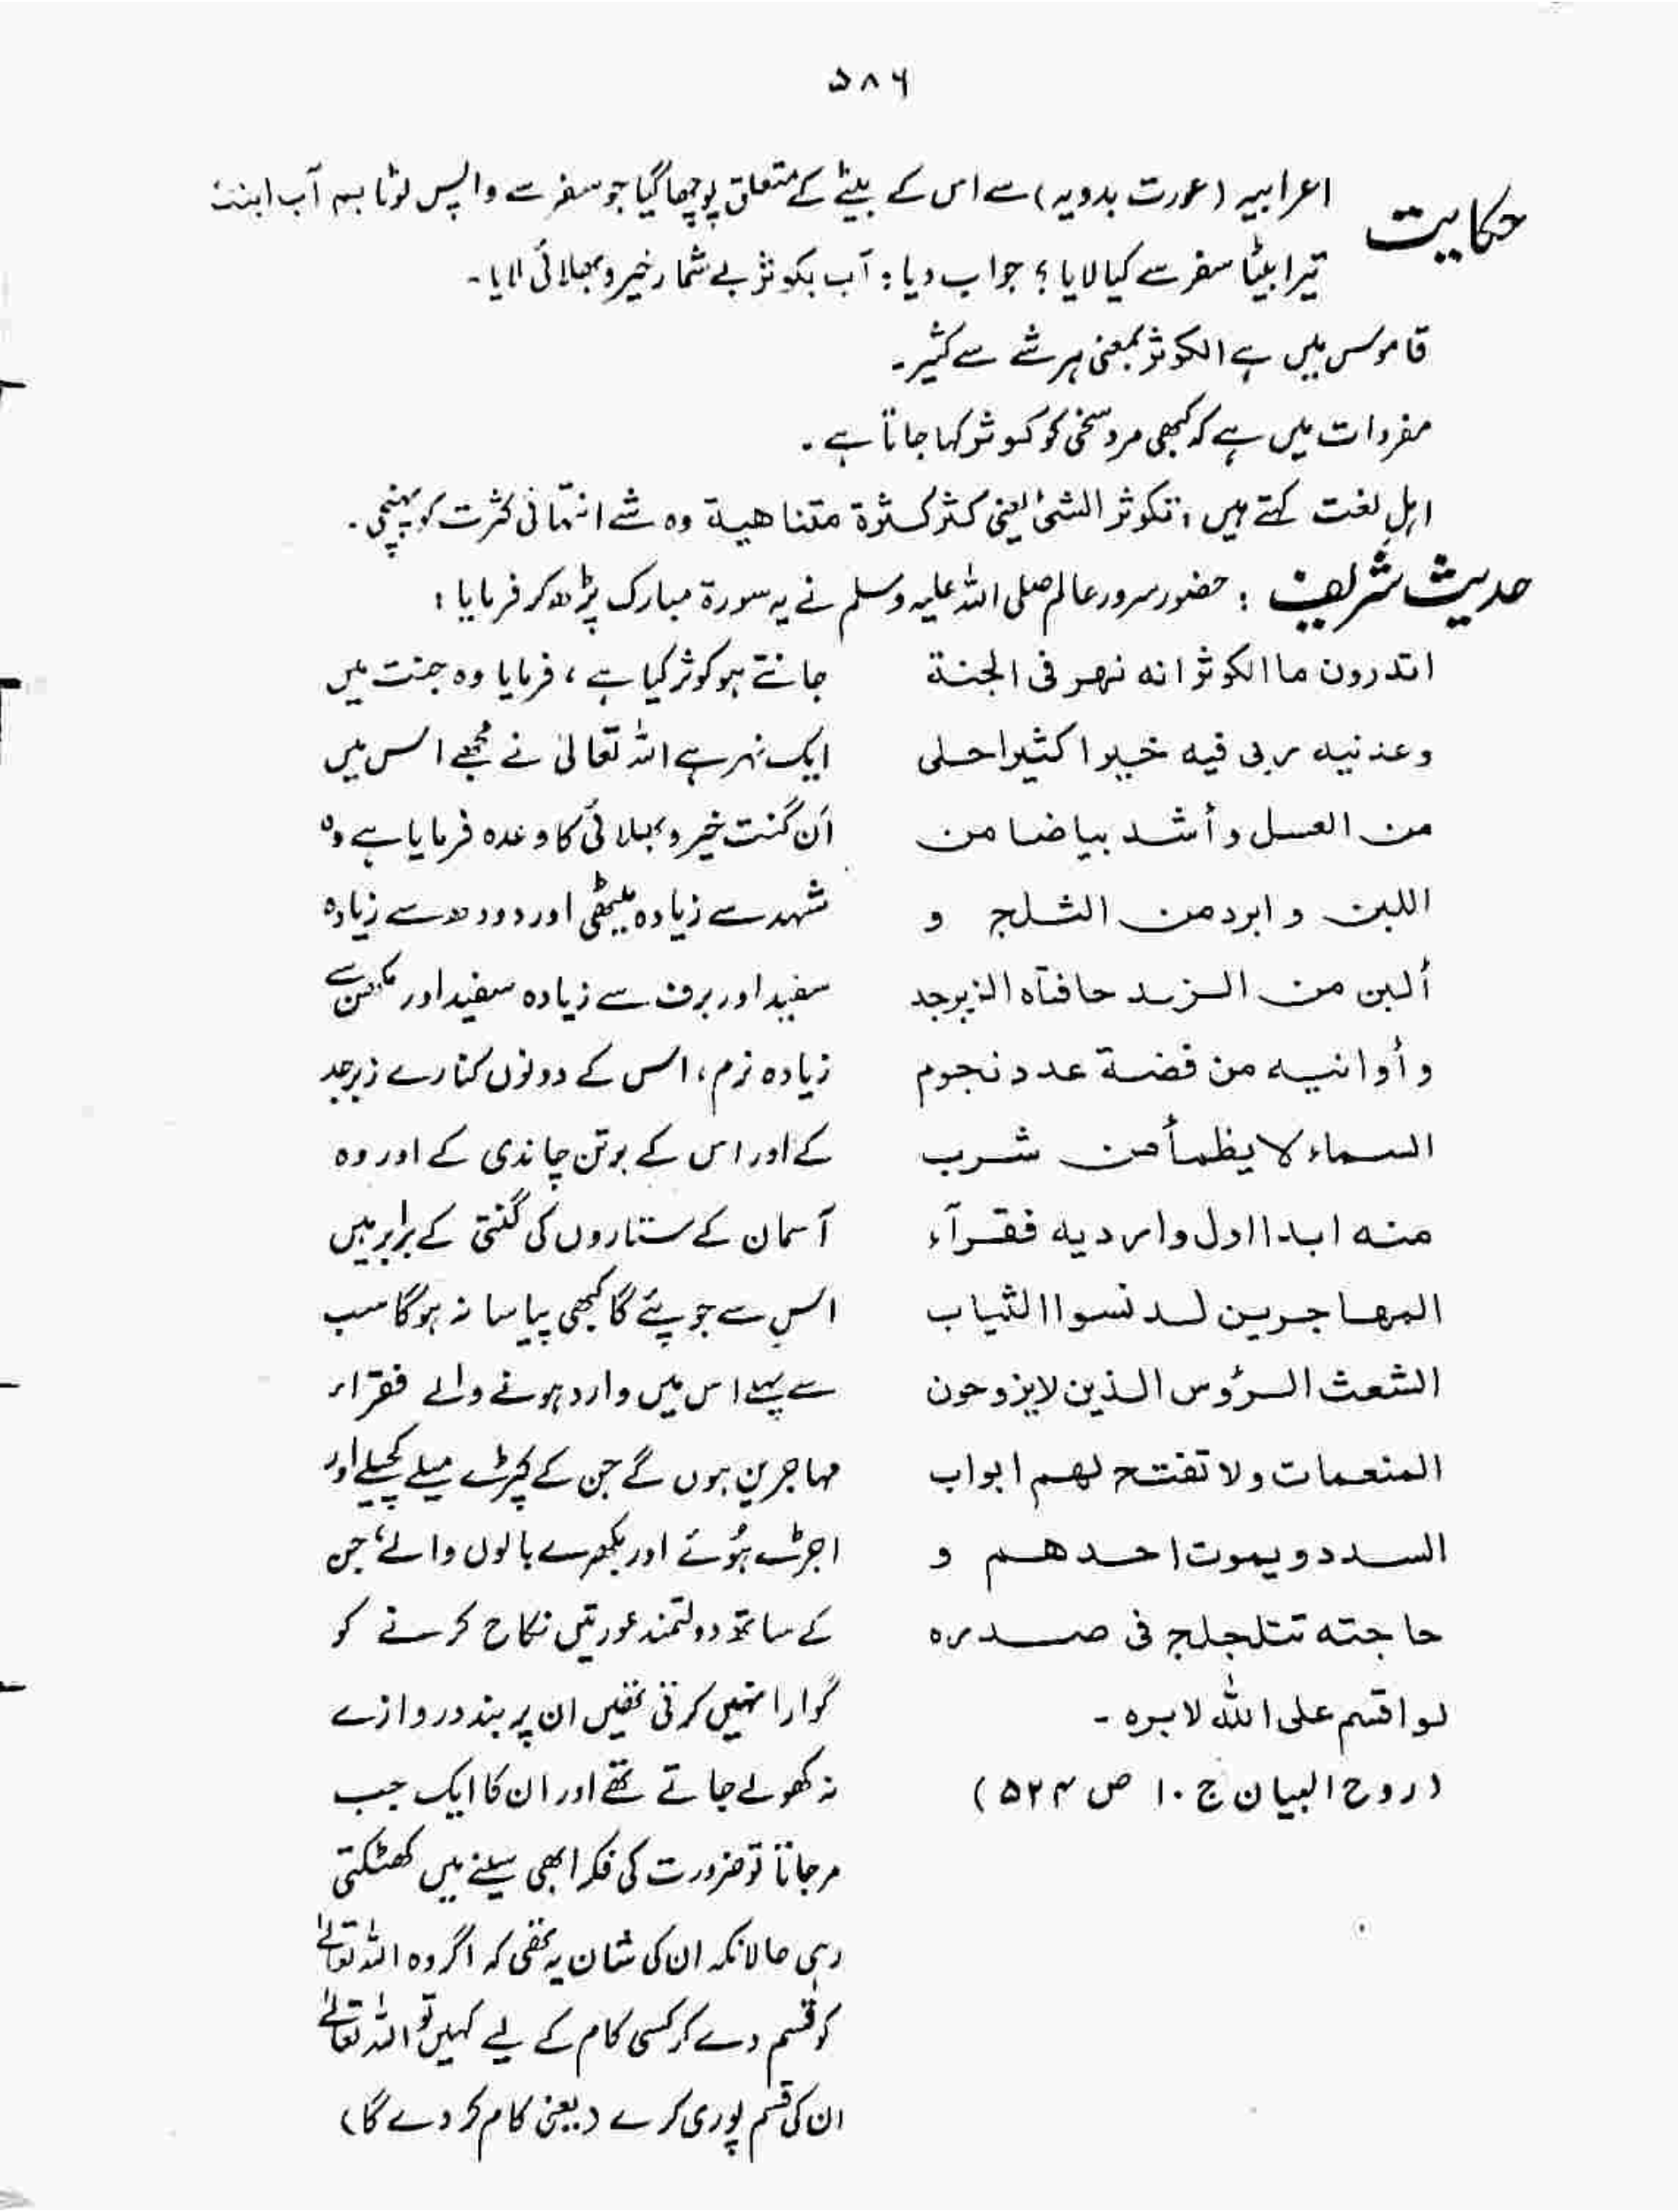 ۵۸۶
حکایت اعرابیہ (عورت بدویہ) سے اس کے بیٹے کے متعلق پوچھا گیا جو سفر سے واپس لوٹا بم آب ابنت
تیرا بیٹا سفر سے کیا لایا؟ جواب دیا: آب بکوثر بے شمار خیر و بھلائی لایا۔
قاموس میں ہے الکوثر بمعنی ہر شے سے کثیر۔
مفردات میں ہے کہ کبھی مرد سخی کو کوثر کہا جاتا ہے۔
اہلِ لغت کہتے ہیں: تکوثر الشئ یعنی کثر کثرۃ متناھیۃ وہ شے انتہائی کثرت کو پہنچی۔
حدیث شریف : حضور سرور عالم صلی اللہ علیہ وسلم نے یہ سورۃ مبارک پڑھ کر فرمایا:
اتدرون ما الکوثر انہ نھر فی الجنۃ
وعدنیہ ربی فیہ خیرا کثیرا احلی
من العسل و أشد بیاضا من
اللبن و ابرد من الثلج و
ألین من الزبد حافتاہ الزبرجد
و أوانیہ من فضۃ عدد نجوم
السماء لا یظمأ من شرب
منہ ابدا اول واردیہ فقرآء
المھاجرین لدنسوا الثیاب
الشعث الرؤس الذین لایزوجون
المنعمات ولا تفتح لھم ابواب
السدد و یموت احدھم و
حاجتہ تتلجلج فی صدرہ
لو اقسم علی اللہ لابرہ۔
(روح البیان ج ۱۰ ص ۵۲۴)
جانتے ہو کوثر کیا ہے، فرمایا وہ جنت میں
ایک نہر ہے اللہ تعالیٰ نے مجھے اس میں
اَن گنت خیر و بھلائی کا وعدہ فرمایا ہے وہ
شہد سے زیادہ میٹھی اور دودھ سے زیادہ
سفید اور برف سے زیادہ سفید اور مکھن سے
زیادہ نرم، اس کے دونوں کنارے زبرجد
کے اور اس کے برتن چاندی کے اور وہ
آسمان کے ستاروں کی گنتی کے برابر ہیں
اس سے جو پئے گا کبھی پیاسا نہ ہوگا سب
سے پہلے اس میں وارد ہونے والے فقراء
مہاجرین ہوں گے جن کے کپڑے میلے کچیلے اور
اجڑے ہُوئے اور بکھرے بالوں والے، جن
کے ساتھ دولتمند عورتیں نکاح کرنے کو
گوارا نہیں کرتی تھیں ان پر بند دروازے
نہ کھولے جاتے تھے اور ان کا ایک جب
مرجاتا تو ضرورت کی فکر ابھی سینے میں کھٹکتی
رہی حالانکہ ان کی شان یہ تھی کہ اگر وہ اللہ تعالیٰ
کو قسم دے کر کسی کام کے لیے کہیں تو اللہ تعالیٰ
ان کی قسم پوری کرے (یعنی کام کر دے گا)